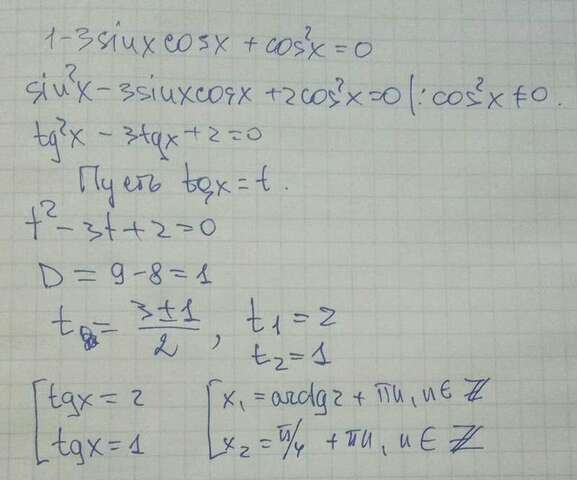 1-3sinxcosx+cos²x=0
sin²x-3sinxcosx+2cos²x=0|:cos²x≠0.
tg²x-3tgx+2=0
Пусть tgx=t.
t²-3t+2=0
D=9-8=1
t=(3±1)/2, t₁=2
t₂=1
[tgx=2 [x₁=arctg2+πn, n∈ℤ
tgx=1 x₂=π/4+πn, n∈ℤ